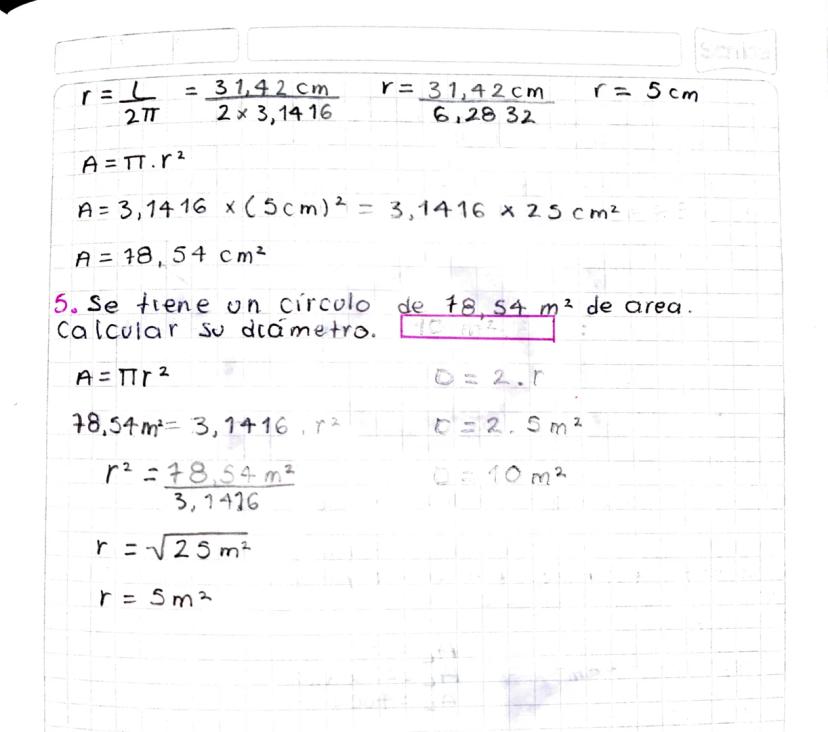 Scribe
r = L/2π = 31,42 cm / 2 x 3,1416 r = 31,42 cm / 6,2832 r = 5 cm
A = π . r²
A = 3,1416 x (5 cm)² = 3,1416 x 25 cm²
A = 78,54 cm²
5. Se tiene un círculo de 78,54 m² de area.
Calcular su diámetro. 10 m²
A = πr²
78,54 m² = 3,1416 . r²
r² = 78,54 m² / 3,1416
r = √25 m²
r = 5 m²
D = 2 . r
D = 2 . 5 m²
D = 10 m²